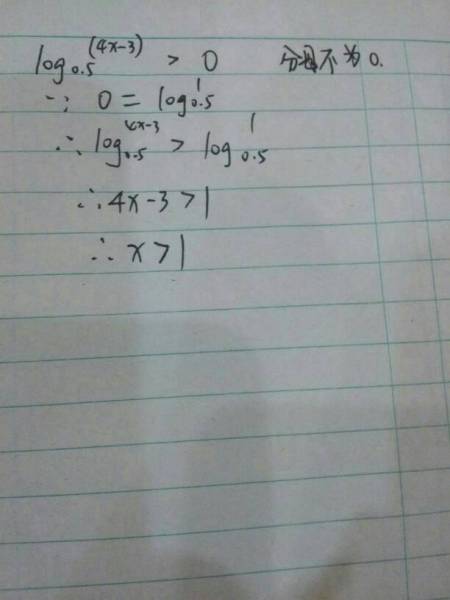 log₀.₅^(4x-3) > 0 分母不为0.
∵ 0 = log₀.₅^1
∴ log₀.₅^4x-3 > log₀.₅^1
∴ 4x-3 > 1
∴ x > 1